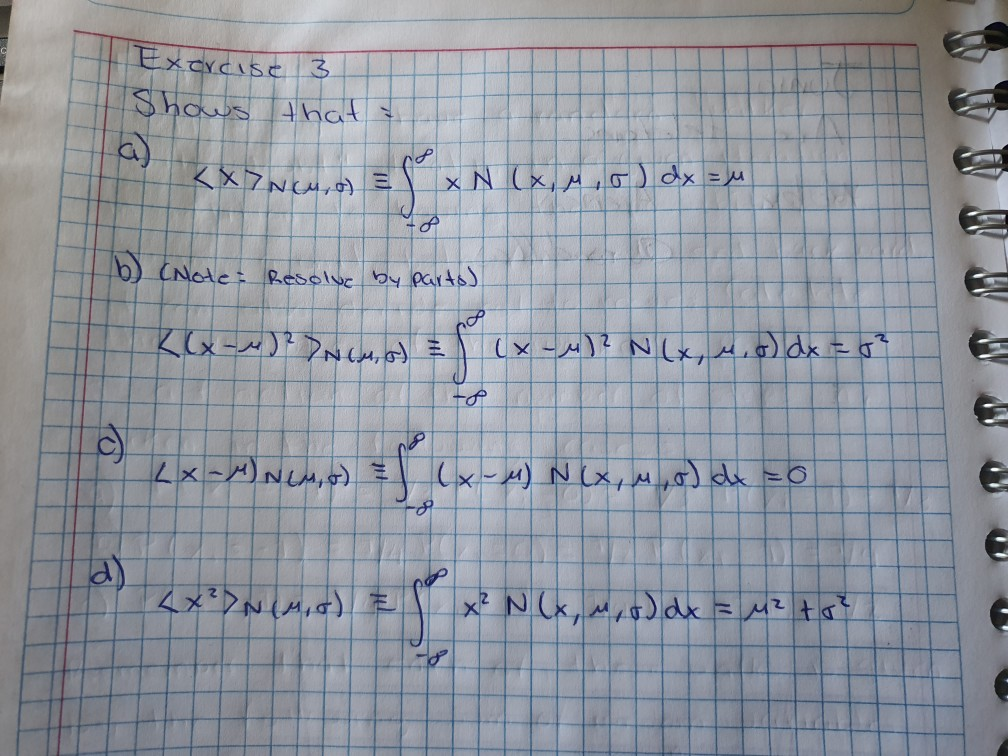 Exercise 3
Shows that :
a)
<x>N(μ,σ) ≡ ∫_{-∞}^{∞} x N (x, μ, σ) dx = μ
b) (Note: Resolve by parts)
<(x-μ)²>N(μ,σ) ≡ ∫_{-∞}^{∞} (x-μ)² N(x, μ, σ) dx = σ²
c)
<x-μ)N(μ,σ) ≡ ∫_{-∞}^{∞} (x-μ) N(x, μ, σ) dx = 0
d)
<x²>N(μ,σ) ≡ ∫_{-∞}^{∞} x² N(x, μ, σ) dx = μ² + σ²